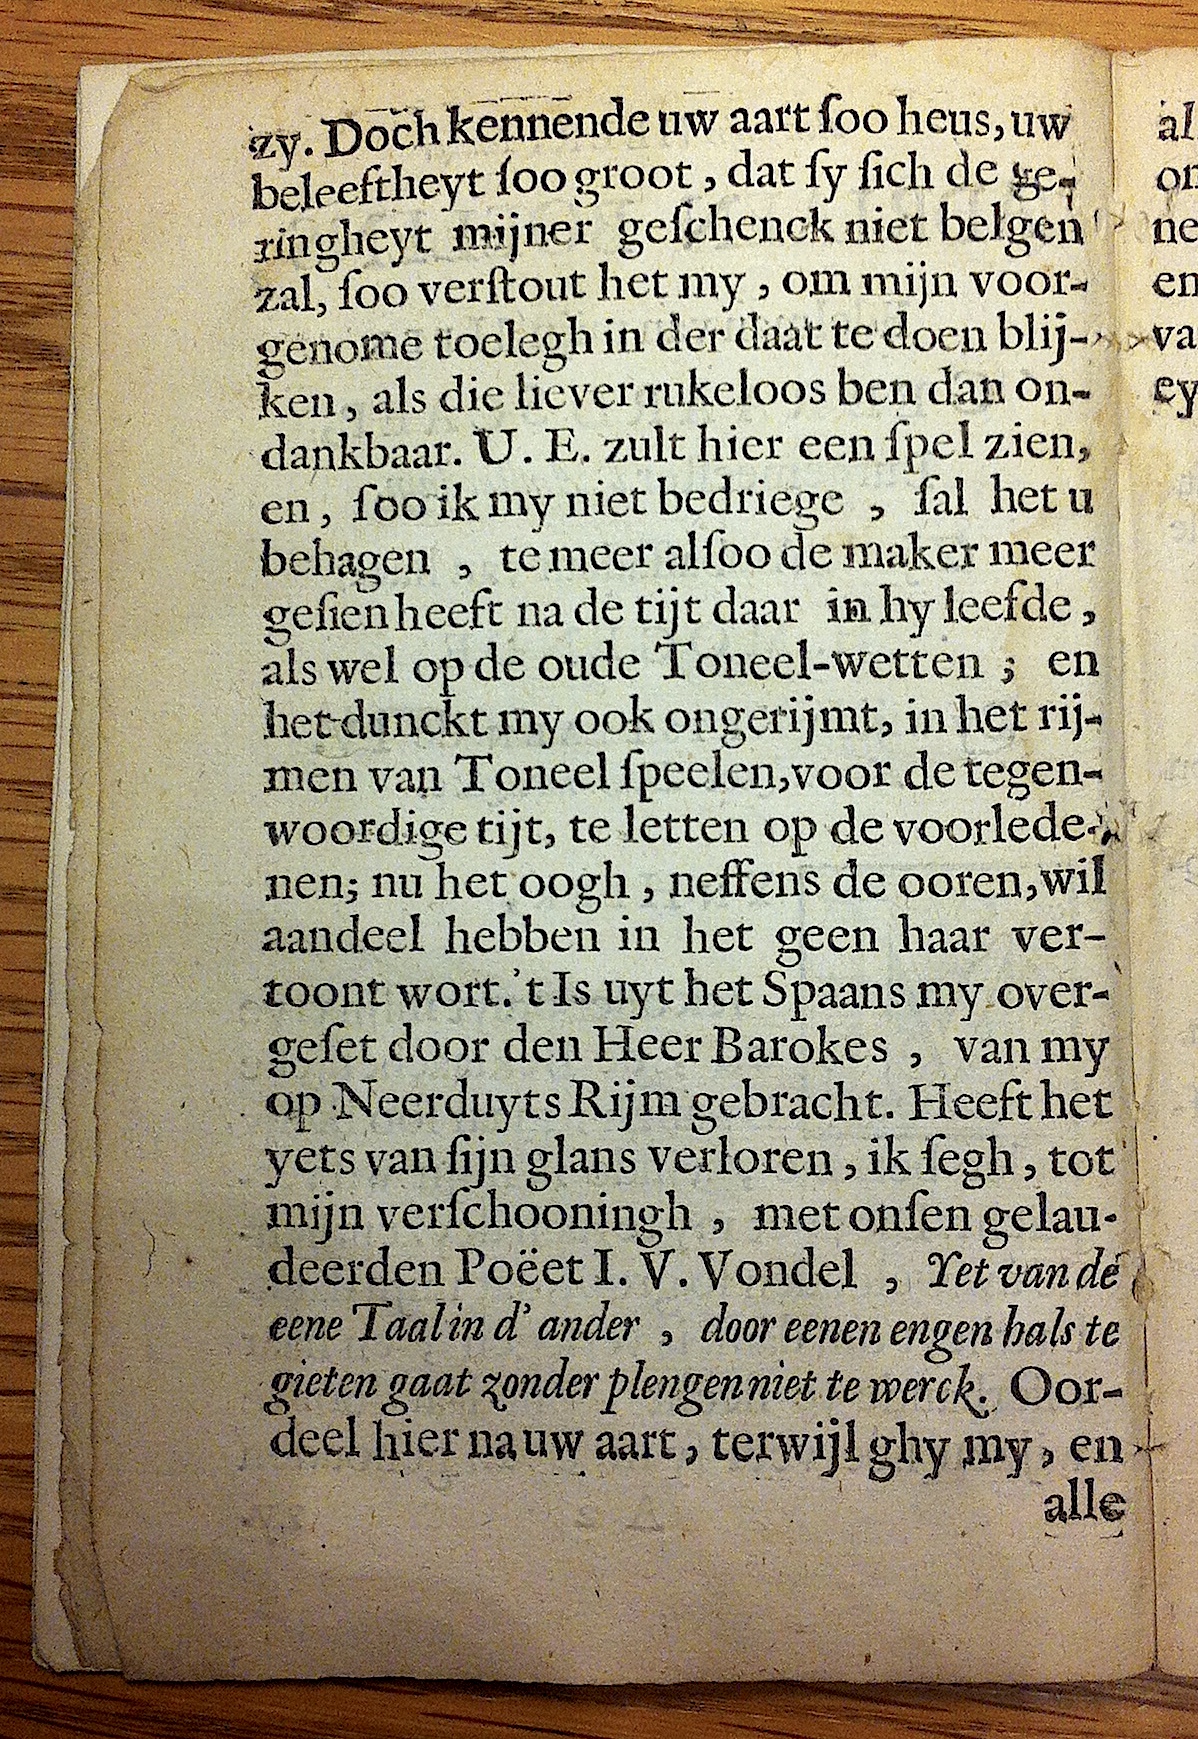 zy. Doch kennende uw aart ſoo heus, uw
beleeftheyt ſoo groot, dat ſy ſich de ge-
ringheyt mijner geſchenck niet belgen
zal, ſoo verſtout het my, om mijn voor-
genome toelegh in der daat te doen blij-
ken, als die liever rukeloos ben dan on-
dankbaar. U. E. zult hier een ſpel zien,
en, ſoo ik my niet bedriege, ſal het u
behagen, te meer alſoo de maker meer
geſien heeft na de tijt daar in hy leefde,
als wel op de oude Toneel-wetten; en
het dunckt my ook ongerijmt, in het rij-
men van Toneel ſpeelen, voor de tegen-
woordige tijt, te letten op de voorlede-
nen; nu het oogh, neffens de ooren, wil
aandeel hebben in het geen haar ver-
toont wort. 't Is uyt het Spaans my over-
geſet door den Heer Barokes, van my
op Neerduyts Rijm gebracht. Heeft het
yets van ſijn glans verloren, ik ſegh, tot
mijn verſchooningh, met onſen gelau-
deerden Poëet I. V. Vondel, Yet van de
eene Taal in d' ander, door eenen engen hals te
gieten gaat zonder plengen niet te werck. Oor-
deel hier na uw aart, terwijl ghy my, en
alle
al
on
ne
en
va
ey